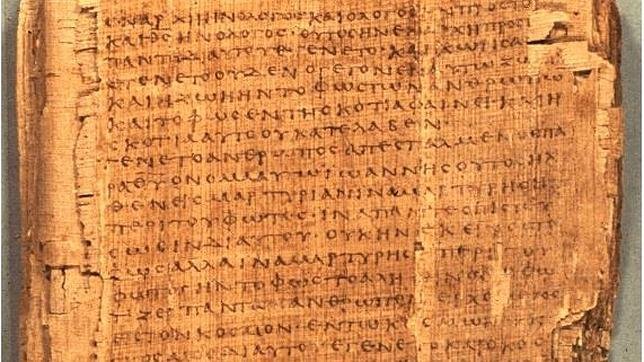 ΕΝΑΡΧΗΗΝΟΛΟΓΟΣΚΑΙΟΛΟΓΟΣΗΝΠΡΟΣΤΟ
ΚΑΙΘΣΗΝΟΛΟΓΟΣ·ΟΥΤΟΣΗΝΕΝΑΡΧΗΠΡΟΣ
ΠΑΝΤΑΔΙΑΥΤΟΥΕΓΕΝΕΤΟ·ΚΑΙΧΩΡΙΣΑΥ
ΕΓΕΝΕΤΟΟΥΔΕΝΟΓΕΓΟΝΕΝΕΝΑΥΤΩΖΩΗ
ΚΑΙΗΖΩΗΗΝΤΟΦΩΣΤΩΝΑΝΘΡΩΠΩ
ΚΑΙΤΟΦΩΣΕΝΤΗΣΚΟΤΙΑΦΑΙΝΕΙ·ΚΑΙΗ
ΣΚΟΤΙΑΑΥΤΟΟΥΚΑΤΕΛΑΒΕΝ·
ΕΓΕΝΕΤΟΑΝΘΡΩΠΟΣΑΠΕΣΤΑΛΜΕΝΟΣΠΑ
ΡΑΘΥΟΝΟΜΑΑΥΤΩΙΩΑΝΝΗΣΟΥΤΟΣΗΛ
ΘΕΝΕΙΣΜΑΡΤΥΡΙΑΝΙΝΑΜΑΡΤΥΡΗΣΗ
ΠΕΡΙΤΟΥΦΩΤΟΣ·ΙΝΑΠΑΝΤΕΣΠΙΣΤΕΥ
ΣΩΣΙΝΔΙΑΥΤΟΥ·ΟΥΚΗΝΕΚΕΙΝΟΣΤΟ
ΦΩΣΑΛΛΑΙΝΑΜΑΡΤΥΡΗΣΗΠΕΡΙΤΟΥ
ΦΩΤΟΣ·ΗΝΤΟΦΩΣΤΟΑΛΗΘΙΝΟΝΟΦΩ
ΤΙΖΕΙΠΑΝΤΑΑΝΘΡΩΠΟΝΕΡΧΟΜΕΝΟΝ
ΕΙΣΤΟΝΚΟΣΜΟΝ·ΕΝΤΩΚΟΣΜΩΗΝ
ΚΟΣΜΟΣΔΙΑΥΤΟΥΕΓΕΝΕΤΟΚΑΙΟΚΟΣ